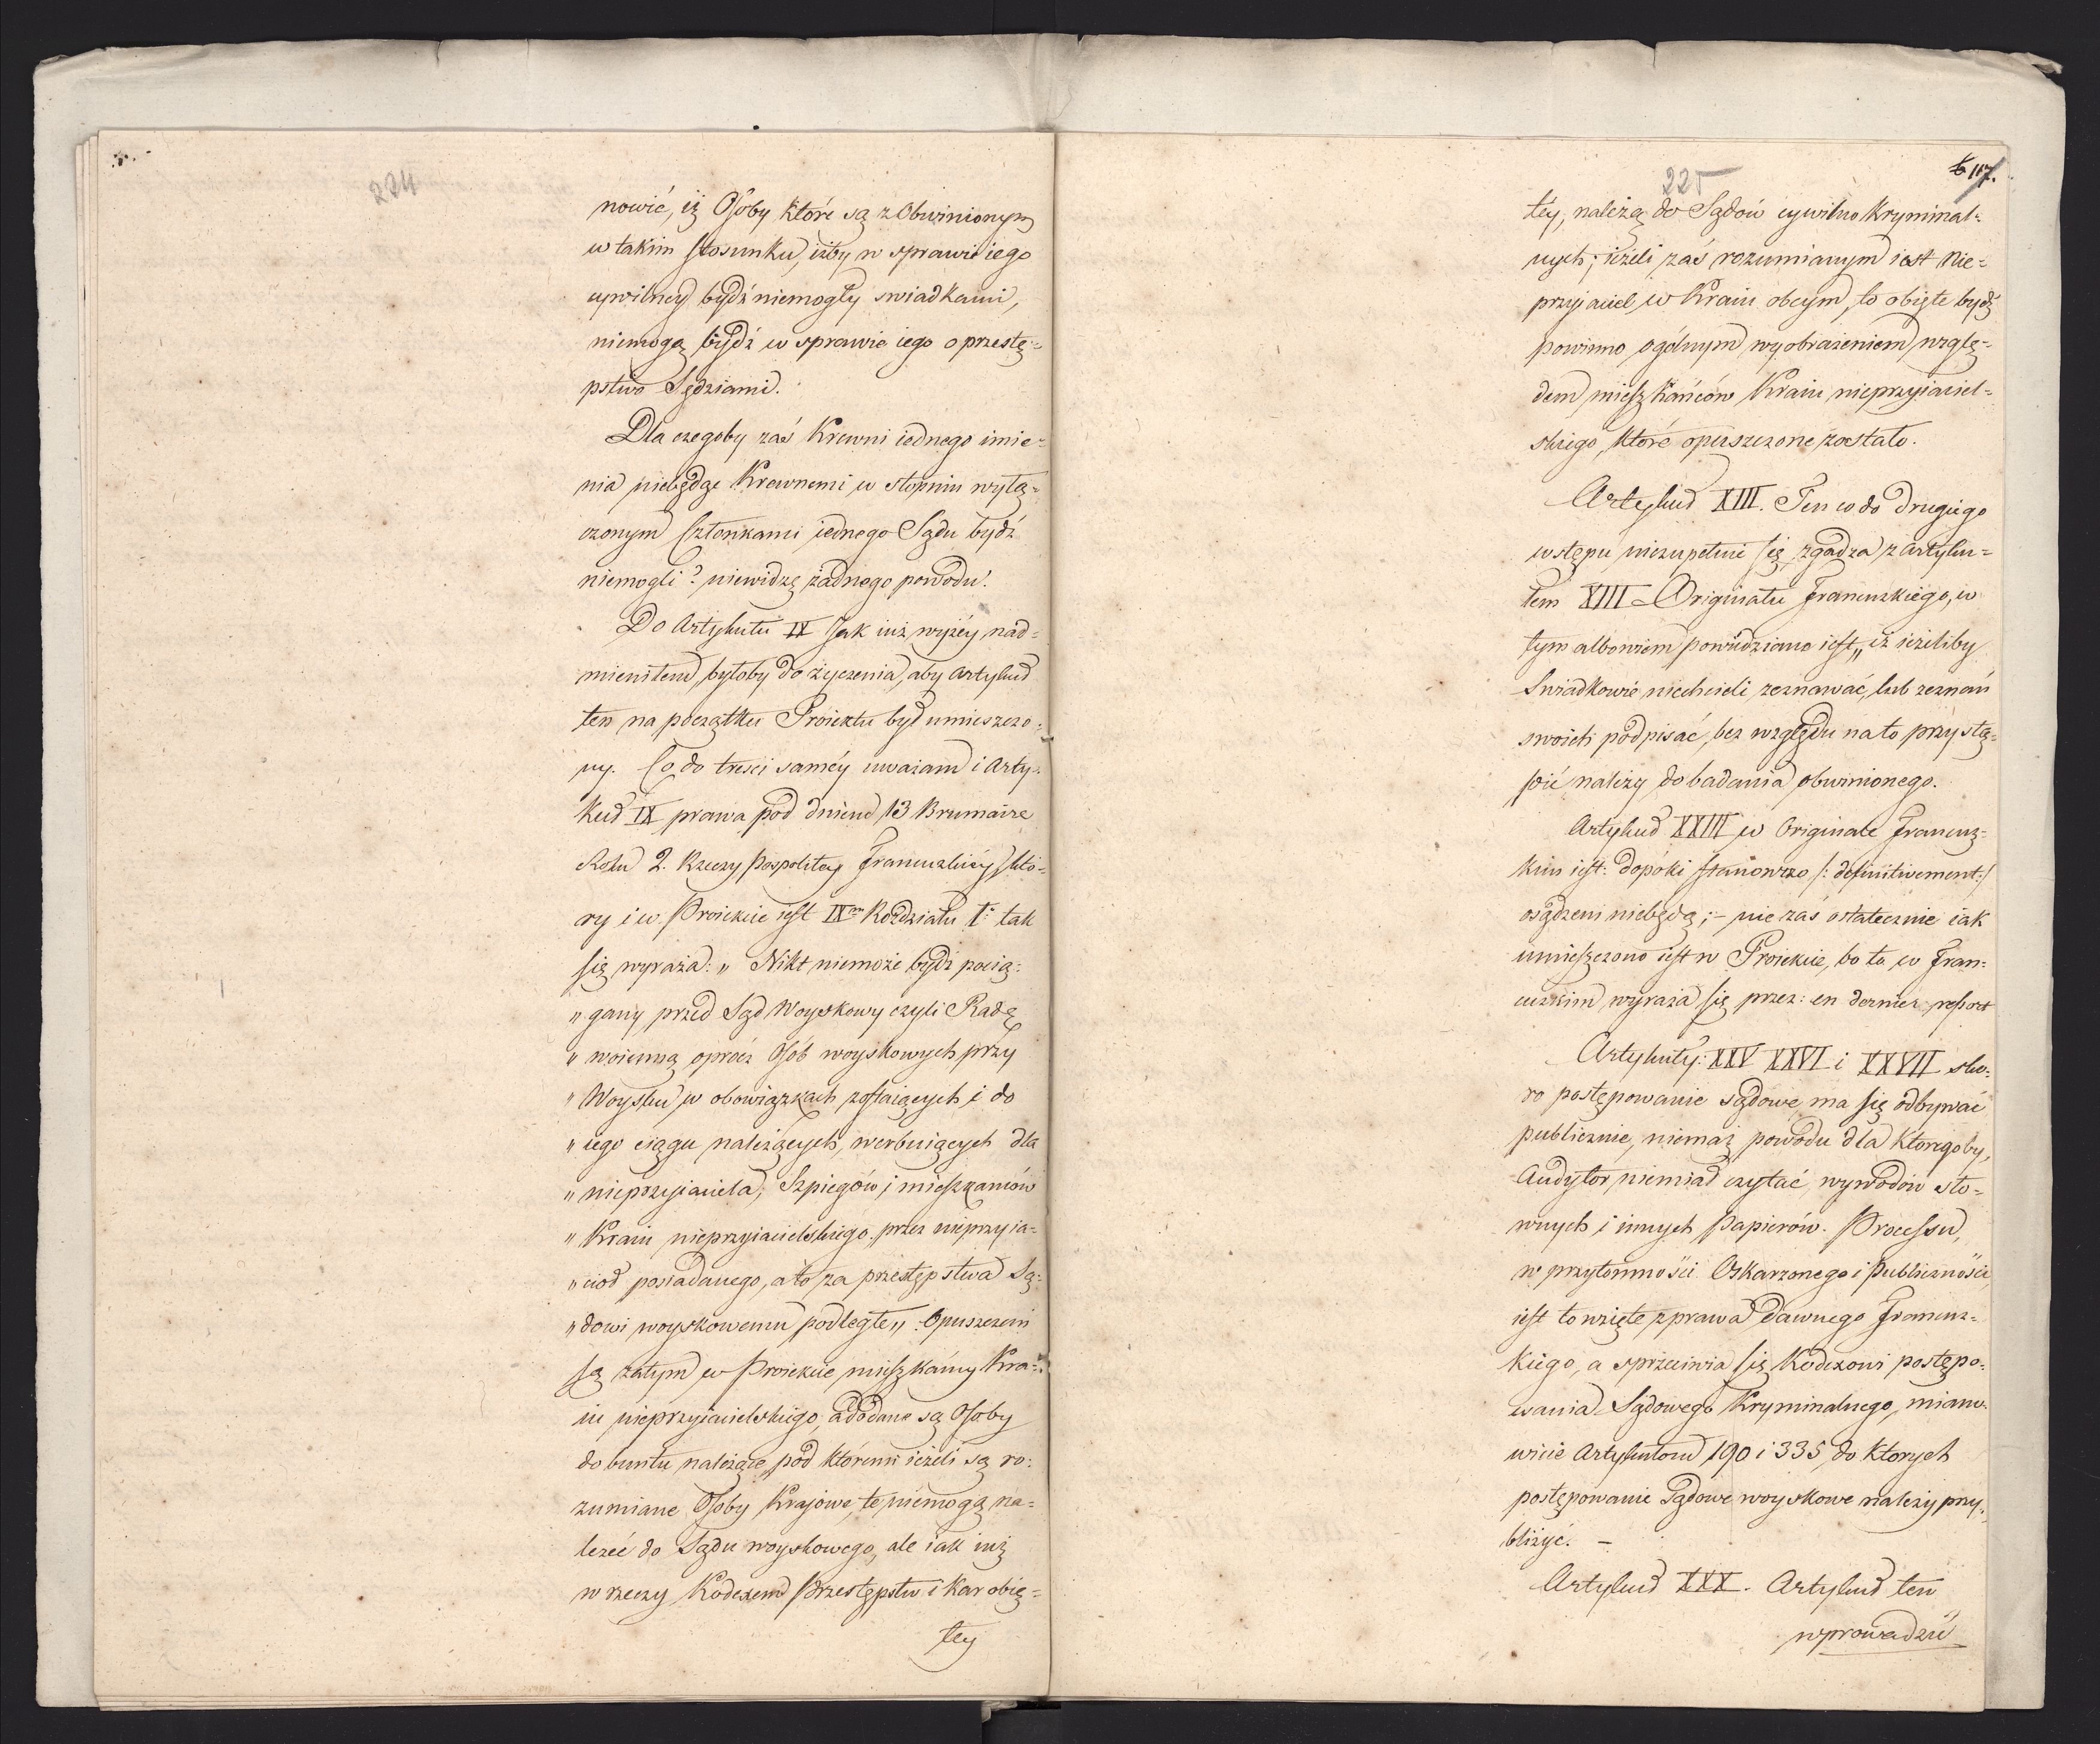 224
nowić, iż Osoby które są z Obwinionym
w takim stosunku, iżby w sprawie iego
cywilney bydź niemogły swiadkami,
niemogą bydź w sprawie iego o przestę=
pstwo Sędziami.
Dla czegoby zaś Krewni iednego imie=
nia niebędąc Krewnemi w stopniu wyłą=
czonym Członkami iednego Sądu bydź
niemogli? niewidzę żadnego powodu.
Do Artykułu IX Jak iuż wyżéy nad=
mieniłem, byłoby do życzenia, aby Artykuł
ten na początku Proiektu był umieszczo=
ny. Co do tresci saméy uważam i Arty=
kuł IX prawa pod dniem 13 Brumaire
Roku 2. Rzeczy Pospolitey Francuzkiéy, któ=
ry i w Proiekcie iest IXm Rozdziału I: tak
się wyraża: „ Nikt niemoże bydź pocią=
„ gany przed Sąd Woyskowy czyli Radę
„ woienną oprócz Osób woyskowych przy
„ Woysku w obowiązkach zostaiących i do
„ iego ciągu należących, werbuiących dla
„ nieprzyiaciela, Szpiegów i mieszkańców
„ Kraiu nieprzyiacielskiego przez nieprzyia=
„ ciół posiadanego, a to za przestępstwa Są=
„ dowi woyskowemu podległe„ Opuszczeni
są zatym w Proiekcie mieszkańcy Kra=
iu nieprzyiacielskiego, a dodane są Osoby
do buntu należące, pod któremi ieżeli są ro=
zumiane Osoby Krajowe, te niemogą na=
leżeć do Sądu woyskowego, ale iak iuż
w rzeczy Kodexem Przestępstw i Kar obię=
tey
225
117.
téy, należą do Sądów cywilno Kryminal=
nych; ieżeli zaś rozumianym iest Nie=
przyjaciel w Kraiu obcym, to obięte bydź
powinno ogólnym wyobrażeniem wzglę=
dem mieszkańców Kraiu nieprzyiaciel=
skiego, które opuszczone zostało.
Artykuł XIII. Ten co do drugiego
wstępu niezupełnie się zgadza z Artyku=
łem XIII Originału Francuzkiego, w
tym albowiem powiedziano iest „ iż ieżeliby
Swiadkowie niechcieli zeznawać, lub zeznań
swoich podpisać, bez względu na to przystą=
pić należy do badania obwinionego.
Artykuł XXIII w Originale Francuz=
kim iest: dopóki stanowczo /: definitivement:/
osądzeni niebędą; – nie zaś ostatecznie iak
umieszczono iest w Proiekcie, bo to w Fran=
cuzkim wyraża się przez: en dernier ressort
Artykuły: XXV XXVI i XXVII sko=
ro postępowanie sądowe ma się odbywać
publicznie, niemasz powodu dla któregoby,
Audytor niemiał czytać wywodów sło=
wnych i innych Papierów Processu,
w przytomności Oskarzonego i Publiczności,
iest to wzięte z prawa dawnego Francuz=
kiego, a sprzeciwia się Kodexowi postępo=
wania Sądowego Kryminalnego, miano=
wicie Artykułom 190 i 335, do ktorych
postępowanie Sądowe woyskowe należy przy=
bliżyć. –
Artykuł XXX. Artykuł ten
wprowadził